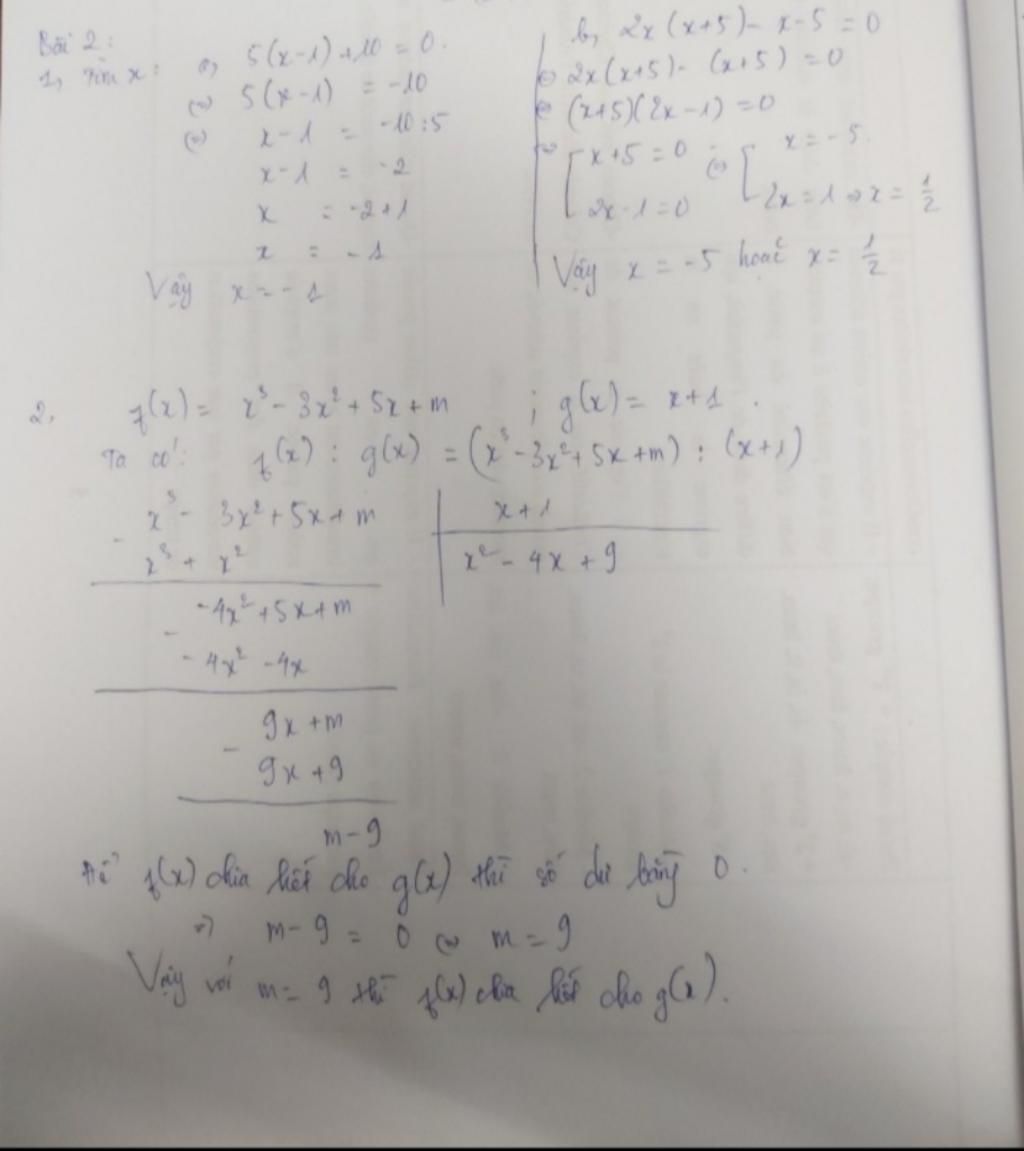 Bài 2:
1, Tìm x: a, 5(x-1)+10 = 0.
(=) 5(x-1) = -10
(=) x-1 = -10:5
x-1 = -2
x = -2+1
x = -1
Vậy x = -1
b, 2x(x+5)- x-5 = 0
(=) 2x(x+5)- (x+5) = 0
(=) (x+5)(2x-1) = 0
(=) [ x+5 = 0 (=) [ x = -5.
2x-1 = 0 2x = 1 => x = 1/2
Vậy x = -5 hoặc x = 1/2
2. f(x) = x³ - 3x² + 5x + m ; g(x) = x+1.
Ta có: f(x) : g(x) = (x³ - 3x² + 5x + m) : (x+1)
- x³ - 3x² + 5x + m | x+1
x³ + x² | x² - 4x + 9
- -4x² + 5x + m
-4x² - 4x
- 9x + m
9x + 9
m - 9
Để f(x) chia hết cho g(x) thì số dư bằng 0.
=> m - 9 = 0 (=) m = 9
Vậy với m = 9 thì f(x) chia hết cho g(x).